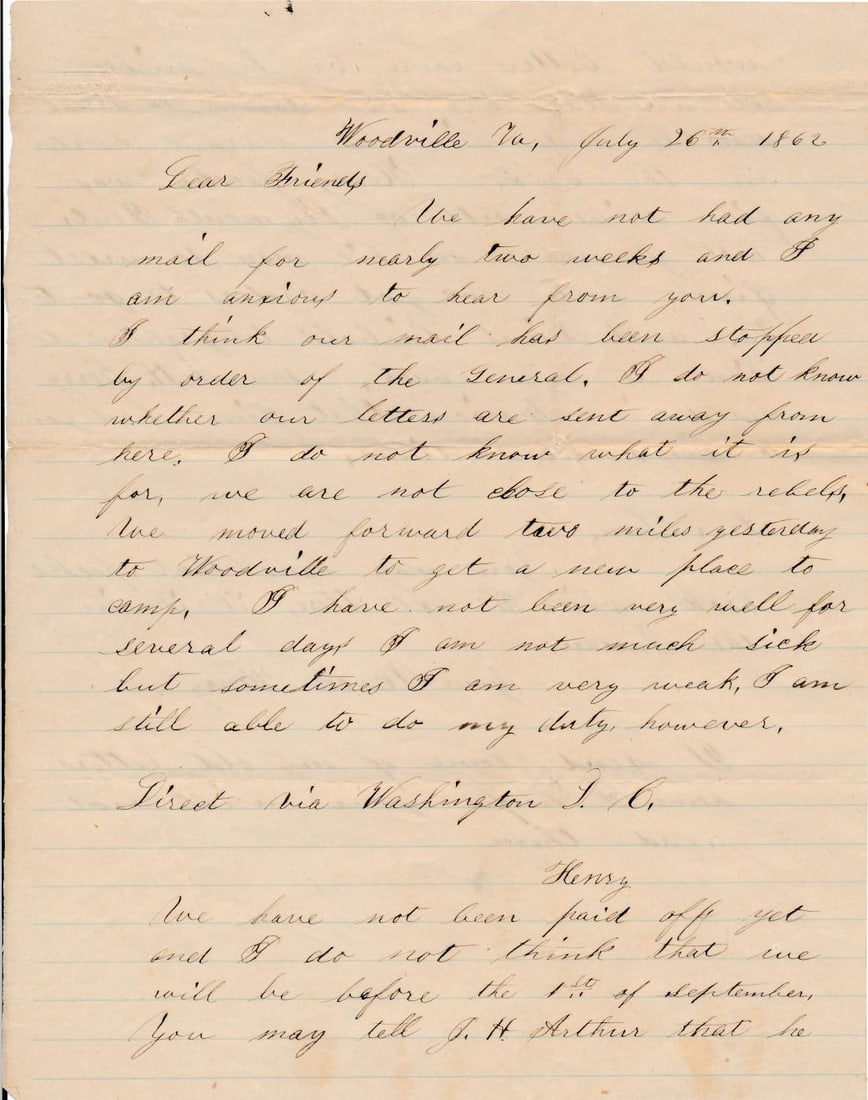 Woodville Va, July 26th 1862
Dear Friends
We have not had any
mail for nearly two weeks and I
am anxious to hear from you.
I think our mail has been stopped
by order of the General. I do not know
whether our letters are sent away from
here. I do not know what it is
for, we are not close to the rebels,
We moved forward two miles yesterday
to Woodville to get a new place to
camp. I have not been very well for
several days I am not much sick
but sometimes I am very weak, I am
still able to do my duty, however.
Direct via Washington D. C.
Henry
We have not been paid off yet
and I do not think that we
will be before the 1st of September,
You may tell J. H. Arthur that he